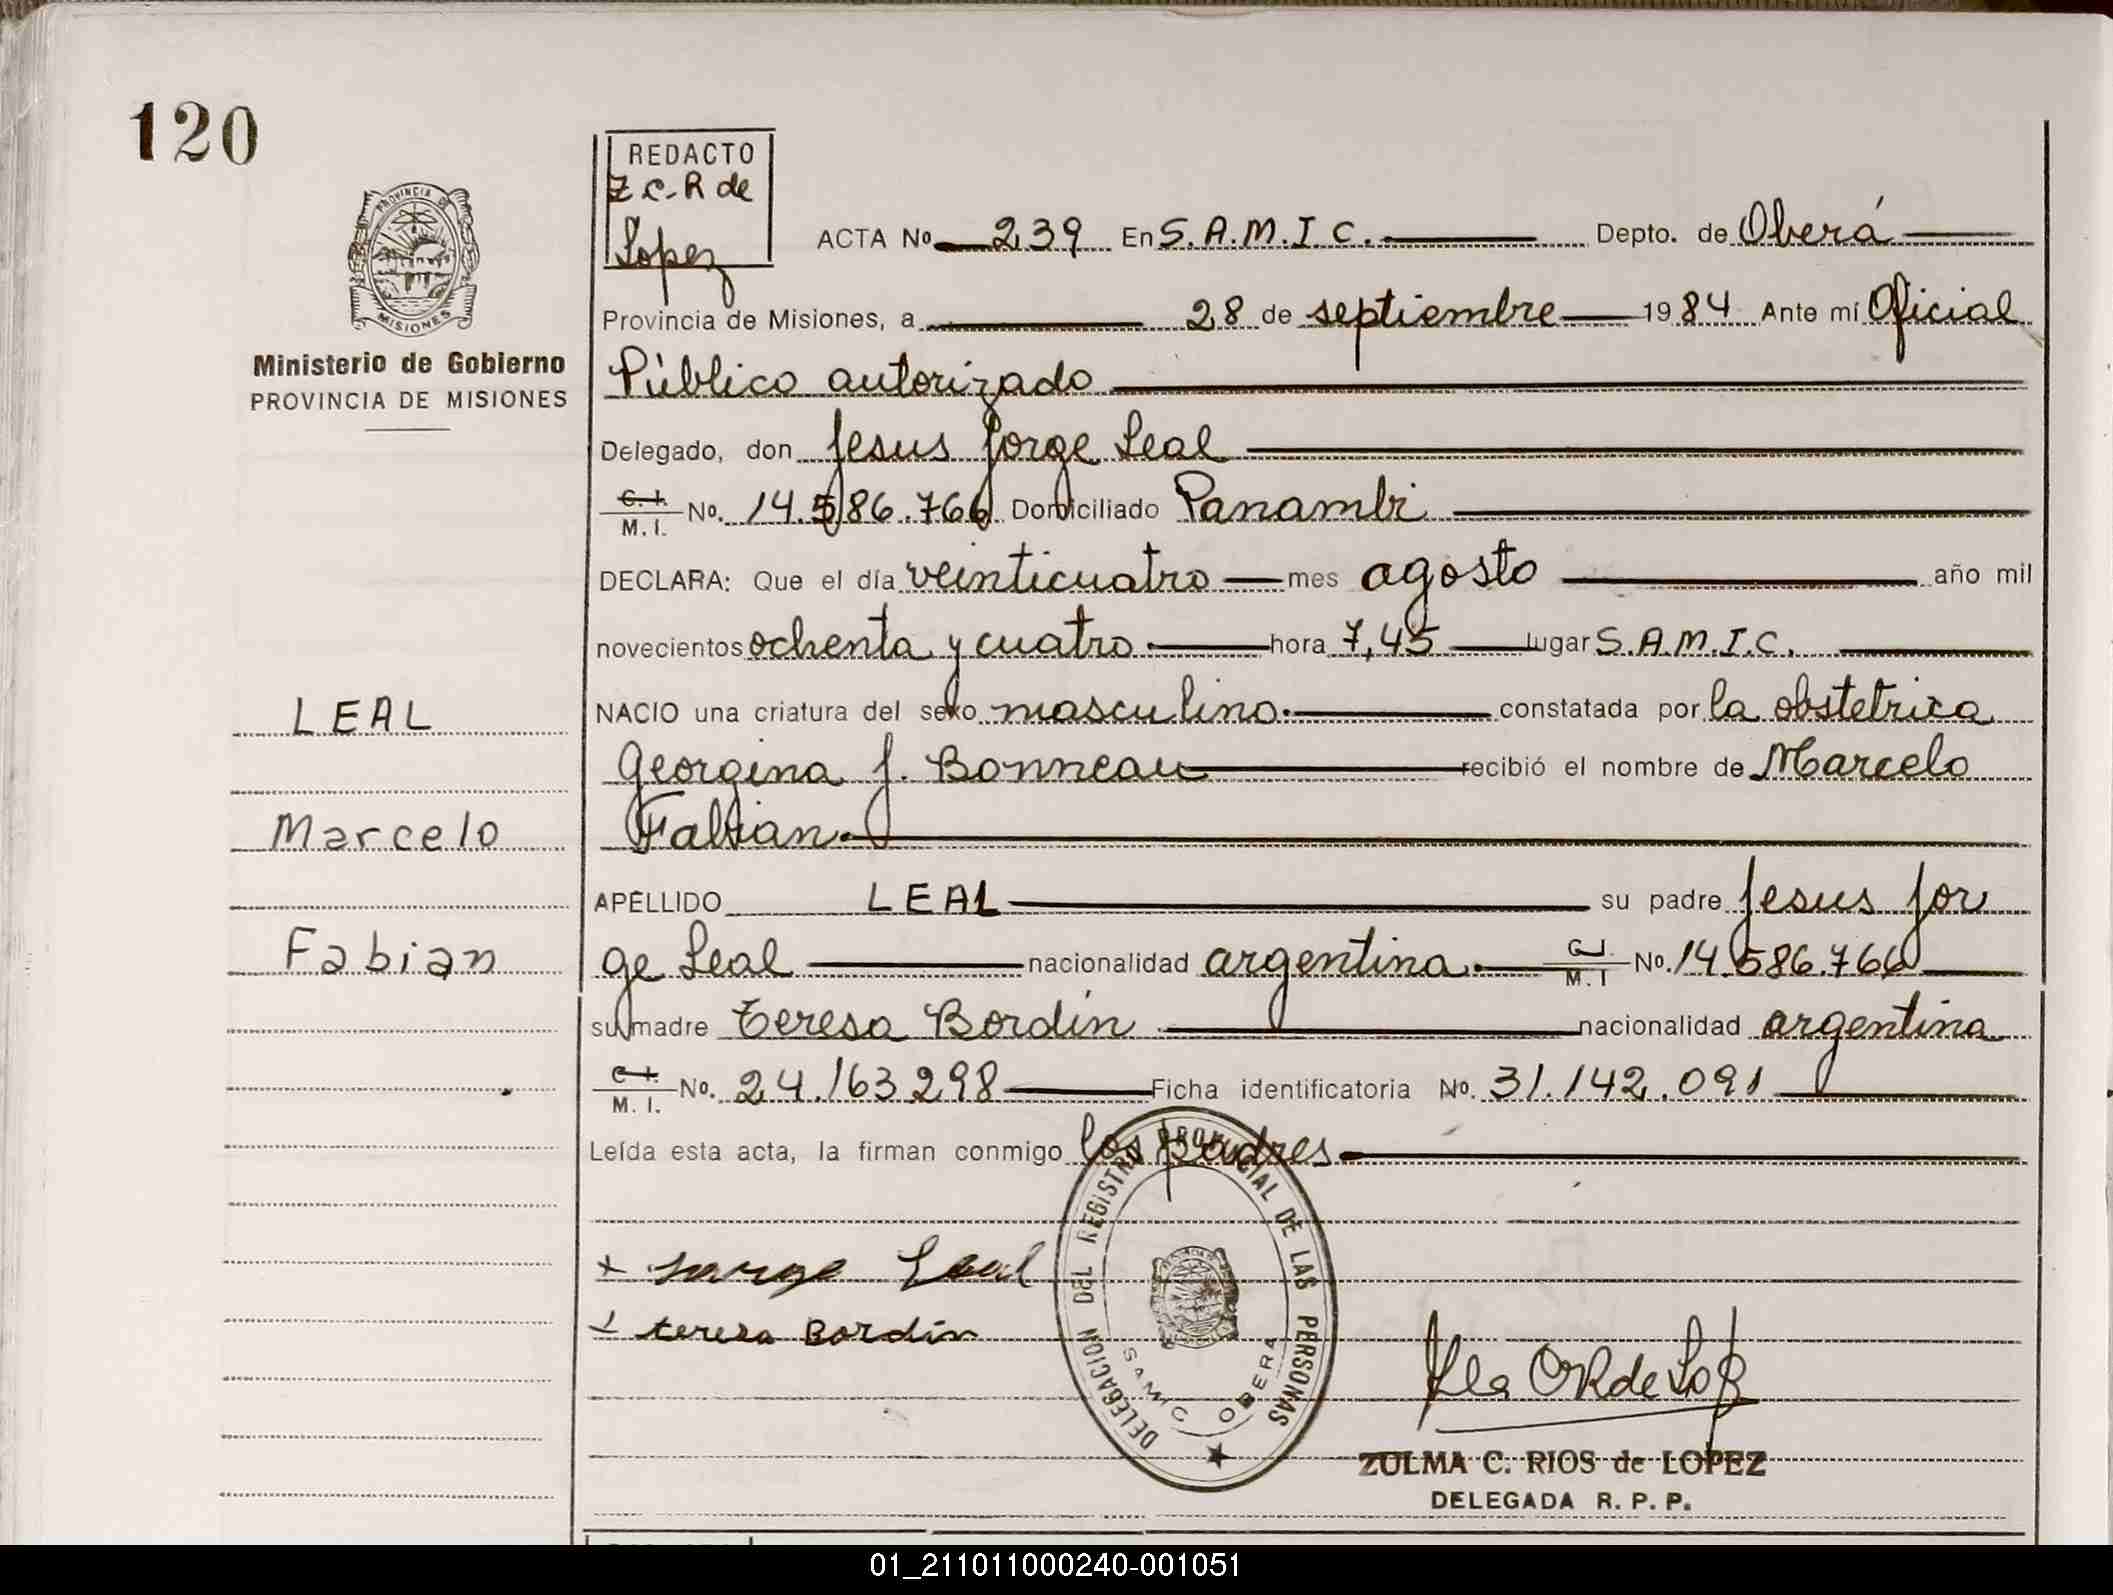 120
REDACTO
Z C-R de
Lopez
PROVINCIA DE
MISIONES
Ministerio de Gobierno
PROVINCIA DE MISIONES
ACTA No 239 En S.A.M.I.C. Depto. de Oberá
Provincia de Misiones, a 28 de septiembre 1984 Ante mí Oficial
Público autorizado
Delegado, don Jesus Jorge Leal
C.I. M.I. No. 14.586.766 Domiciliado Panambi
DECLARA: Que el día veinticuatro mes agosto año mil
novecientos ochenta y cuatro hora 7,45 lugar S.A.M.I.C.
NACIO una criatura del sexo masculino. constatada por la obstetrica
Georgina J. Bonneau recibió el nombre de Marcelo
Fabian.
APELLIDO LEAL su padre Jesus Jor
ge Leal nacionalidad argentina. C.I. M.I No. 14.586.766
su madre Teresa Bordín nacionalidad argentina
C.I. M.I. No. 24.163298 Ficha identificatoria No. 31.142.091
Leída esta acta, la firman conmigo los padres
LEAL
Marcelo
Fabian
Jorge Leal
teresa Bordín
DELEGACION DEL REGISTRO PROVINCIAL DE LAS PERSONAS
SAMIC OBERA
ZULMA C. RIOS de LOPEZ
DELEGADA R. P. P.
01_211011000240-001051